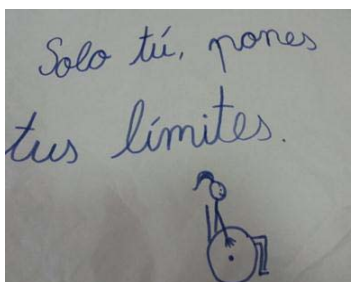 Solo tú, pones
tus límites.